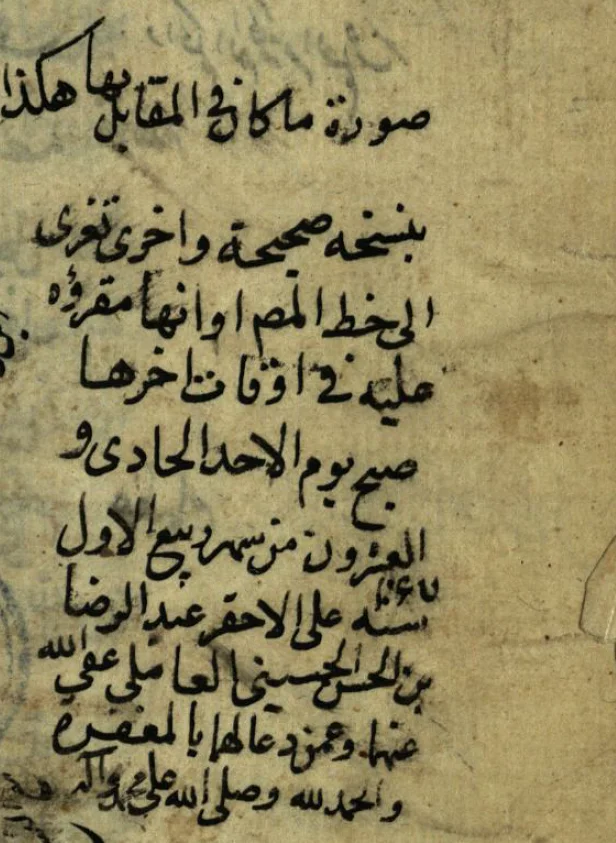 صورة ماكان في المقابل بها هكذا
بنسخه صحيحة واخرى تغرى
الى خط المص اوانها مقروٶه
عليه في اوقات اخرها
صبح يوم الاحد الحادى و
العشرون من شهر ربيع الاول
سنه على الاحقر عبد الرضا
بن الحسن الحسيني العاملى عفى الله
عنهما وعمن دعا لهما بالمغفرة
والحمد لله وصلى الله على محمد واله